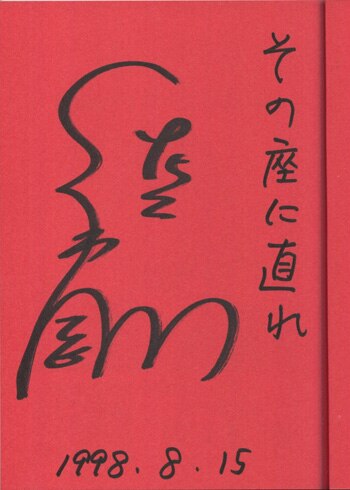 その座に直れ
1998.8.15